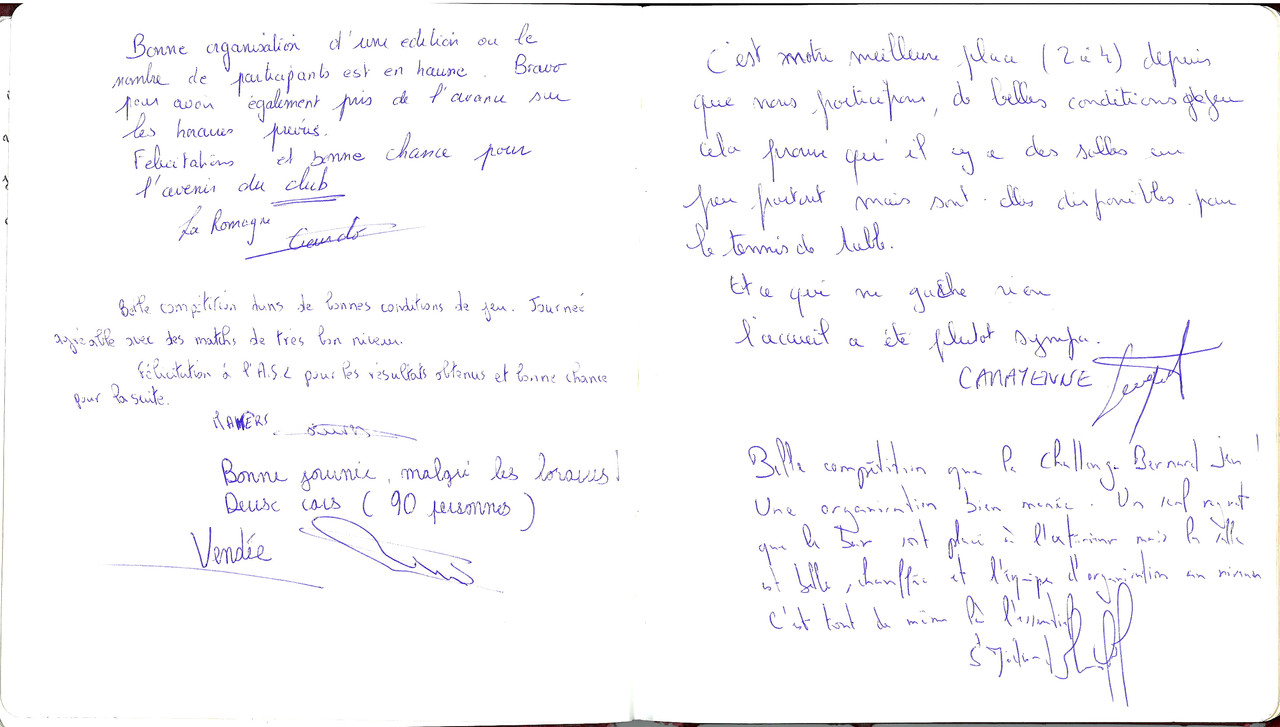 Bonne organisation d'une edition ou le
nombre de participants est en hausse. Bravo
pour avoir également pris de l'avance sur
les horaires prévus.
Félicitations et bonne chance pour
l'avenir du club
La Romagne
Belle compétition dans de bonnes conditions de jeu. Journée
agréable avec des matchs de très bon niveau.
Félicitation à l'A.S.L pour les résultats obtenus et bonne chance
pour la suite.
Bonne journée, malgré les horaires!
Deux cars (90 personnes)
Vendée
C'est notre meilleure place (2 à 4) depuis
que nous participons, de belles conditions de jeu
cela prouve qu'il y a des salles un
peu partout mais sont-elles disponibles pour
le tennis de table.
Et ce qui ne gache rien
l'accueil a été plutot sympa.
Belle compétition que le challenge Bernard Jeu!
Une organisation bien menée. Un seul regret
que le bar soit placé à l'extérieur mais la salle
est belle, chauffée et l'équipe d'organisation au niveau
C'est tout de même là l'essentiel